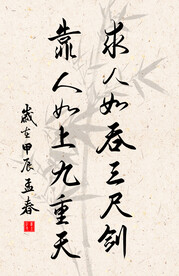 求人如吞三尺劍
靠人如上九重天
歲在甲辰孟春